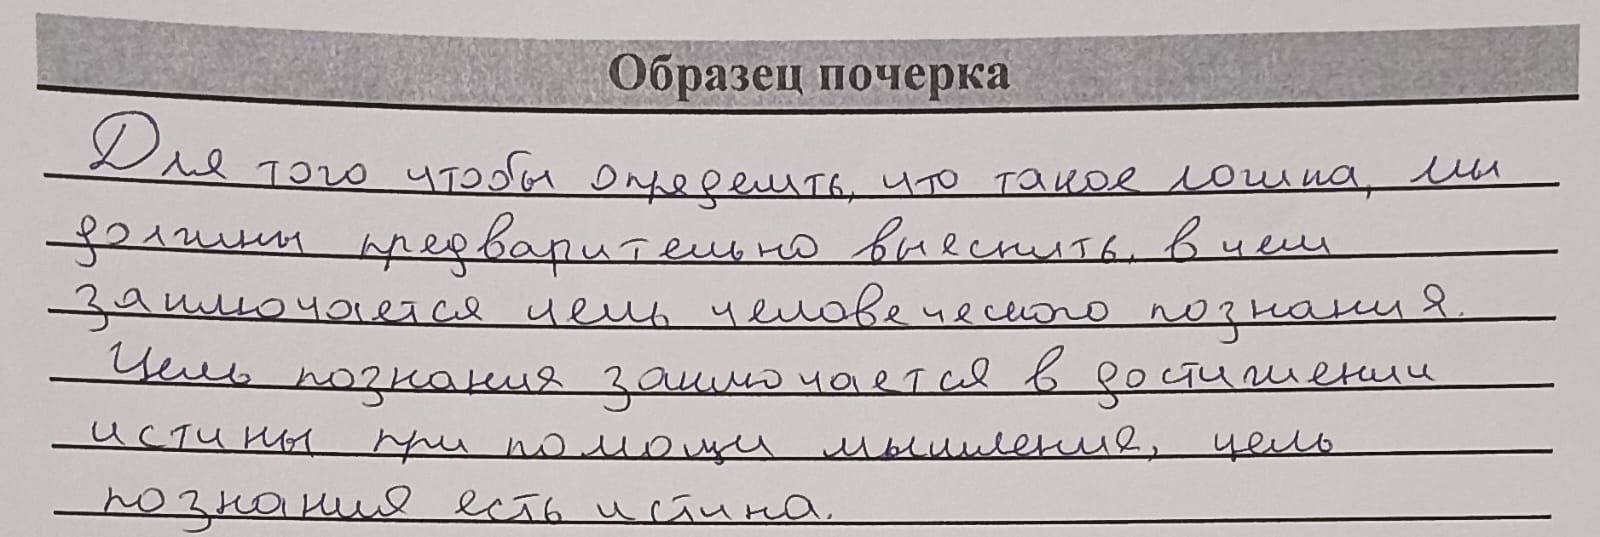 Образец почерка
Для того чтобы определить, что такое логика, мы
должны предварительно выяснить, в чем
заключается цель человеческого познания.
Цель познания заключается в достижении
истины при помощи мышления, цель
познания есть истина.